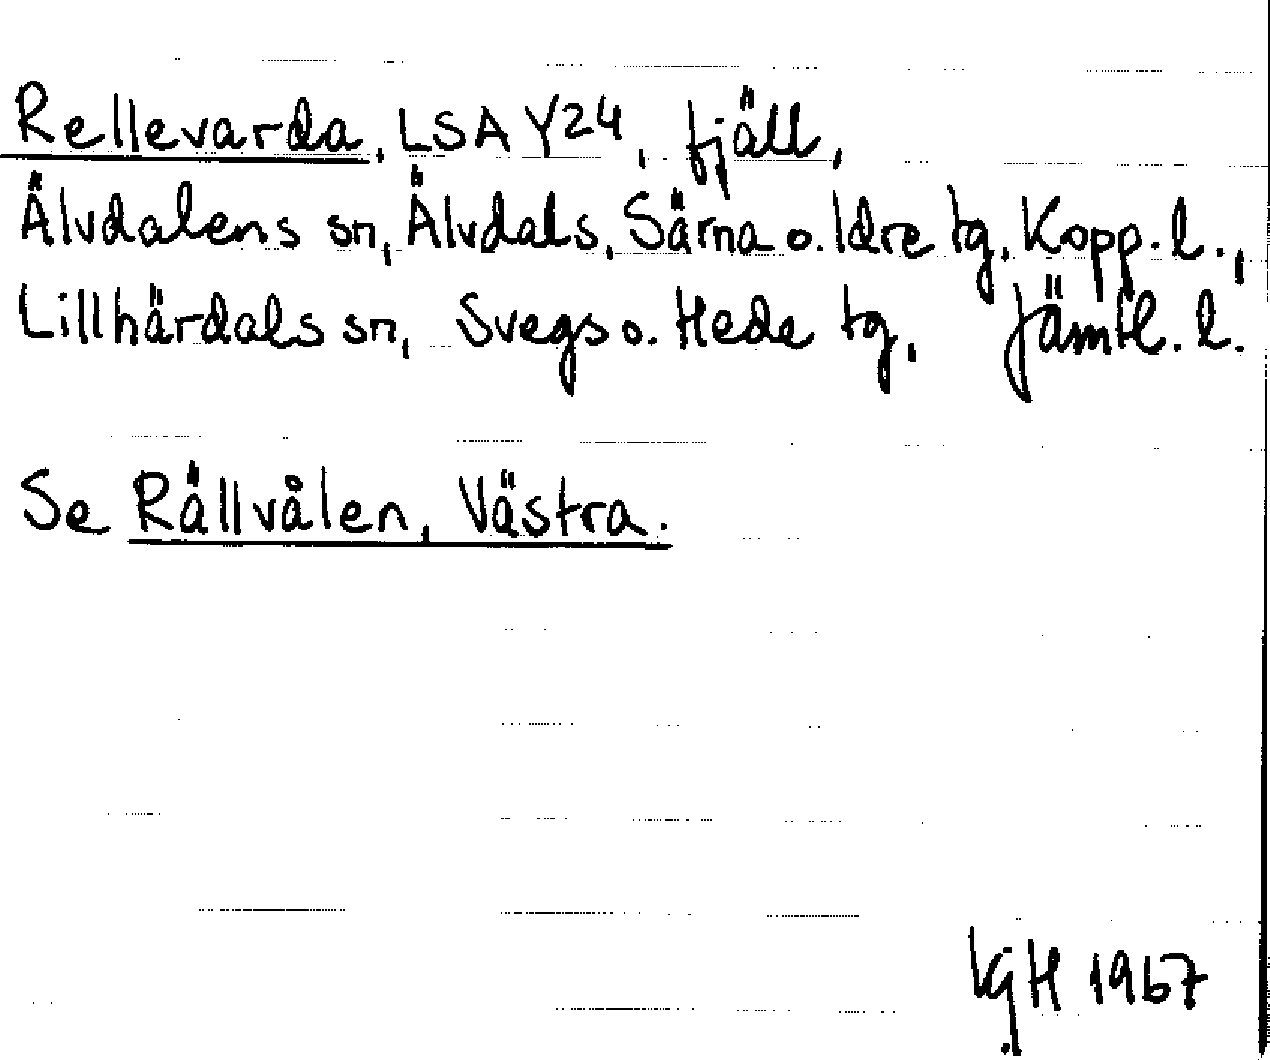 Rellevarda, LSA Y24, fjäll,
Älvdalens sn, Älvdals, Särna o. Idre tg, Kopp. l.,
Lillhärdals sn, Svegs o. Hede tg, Jämtl. l.
Se Rällvålen, Västra.
1967